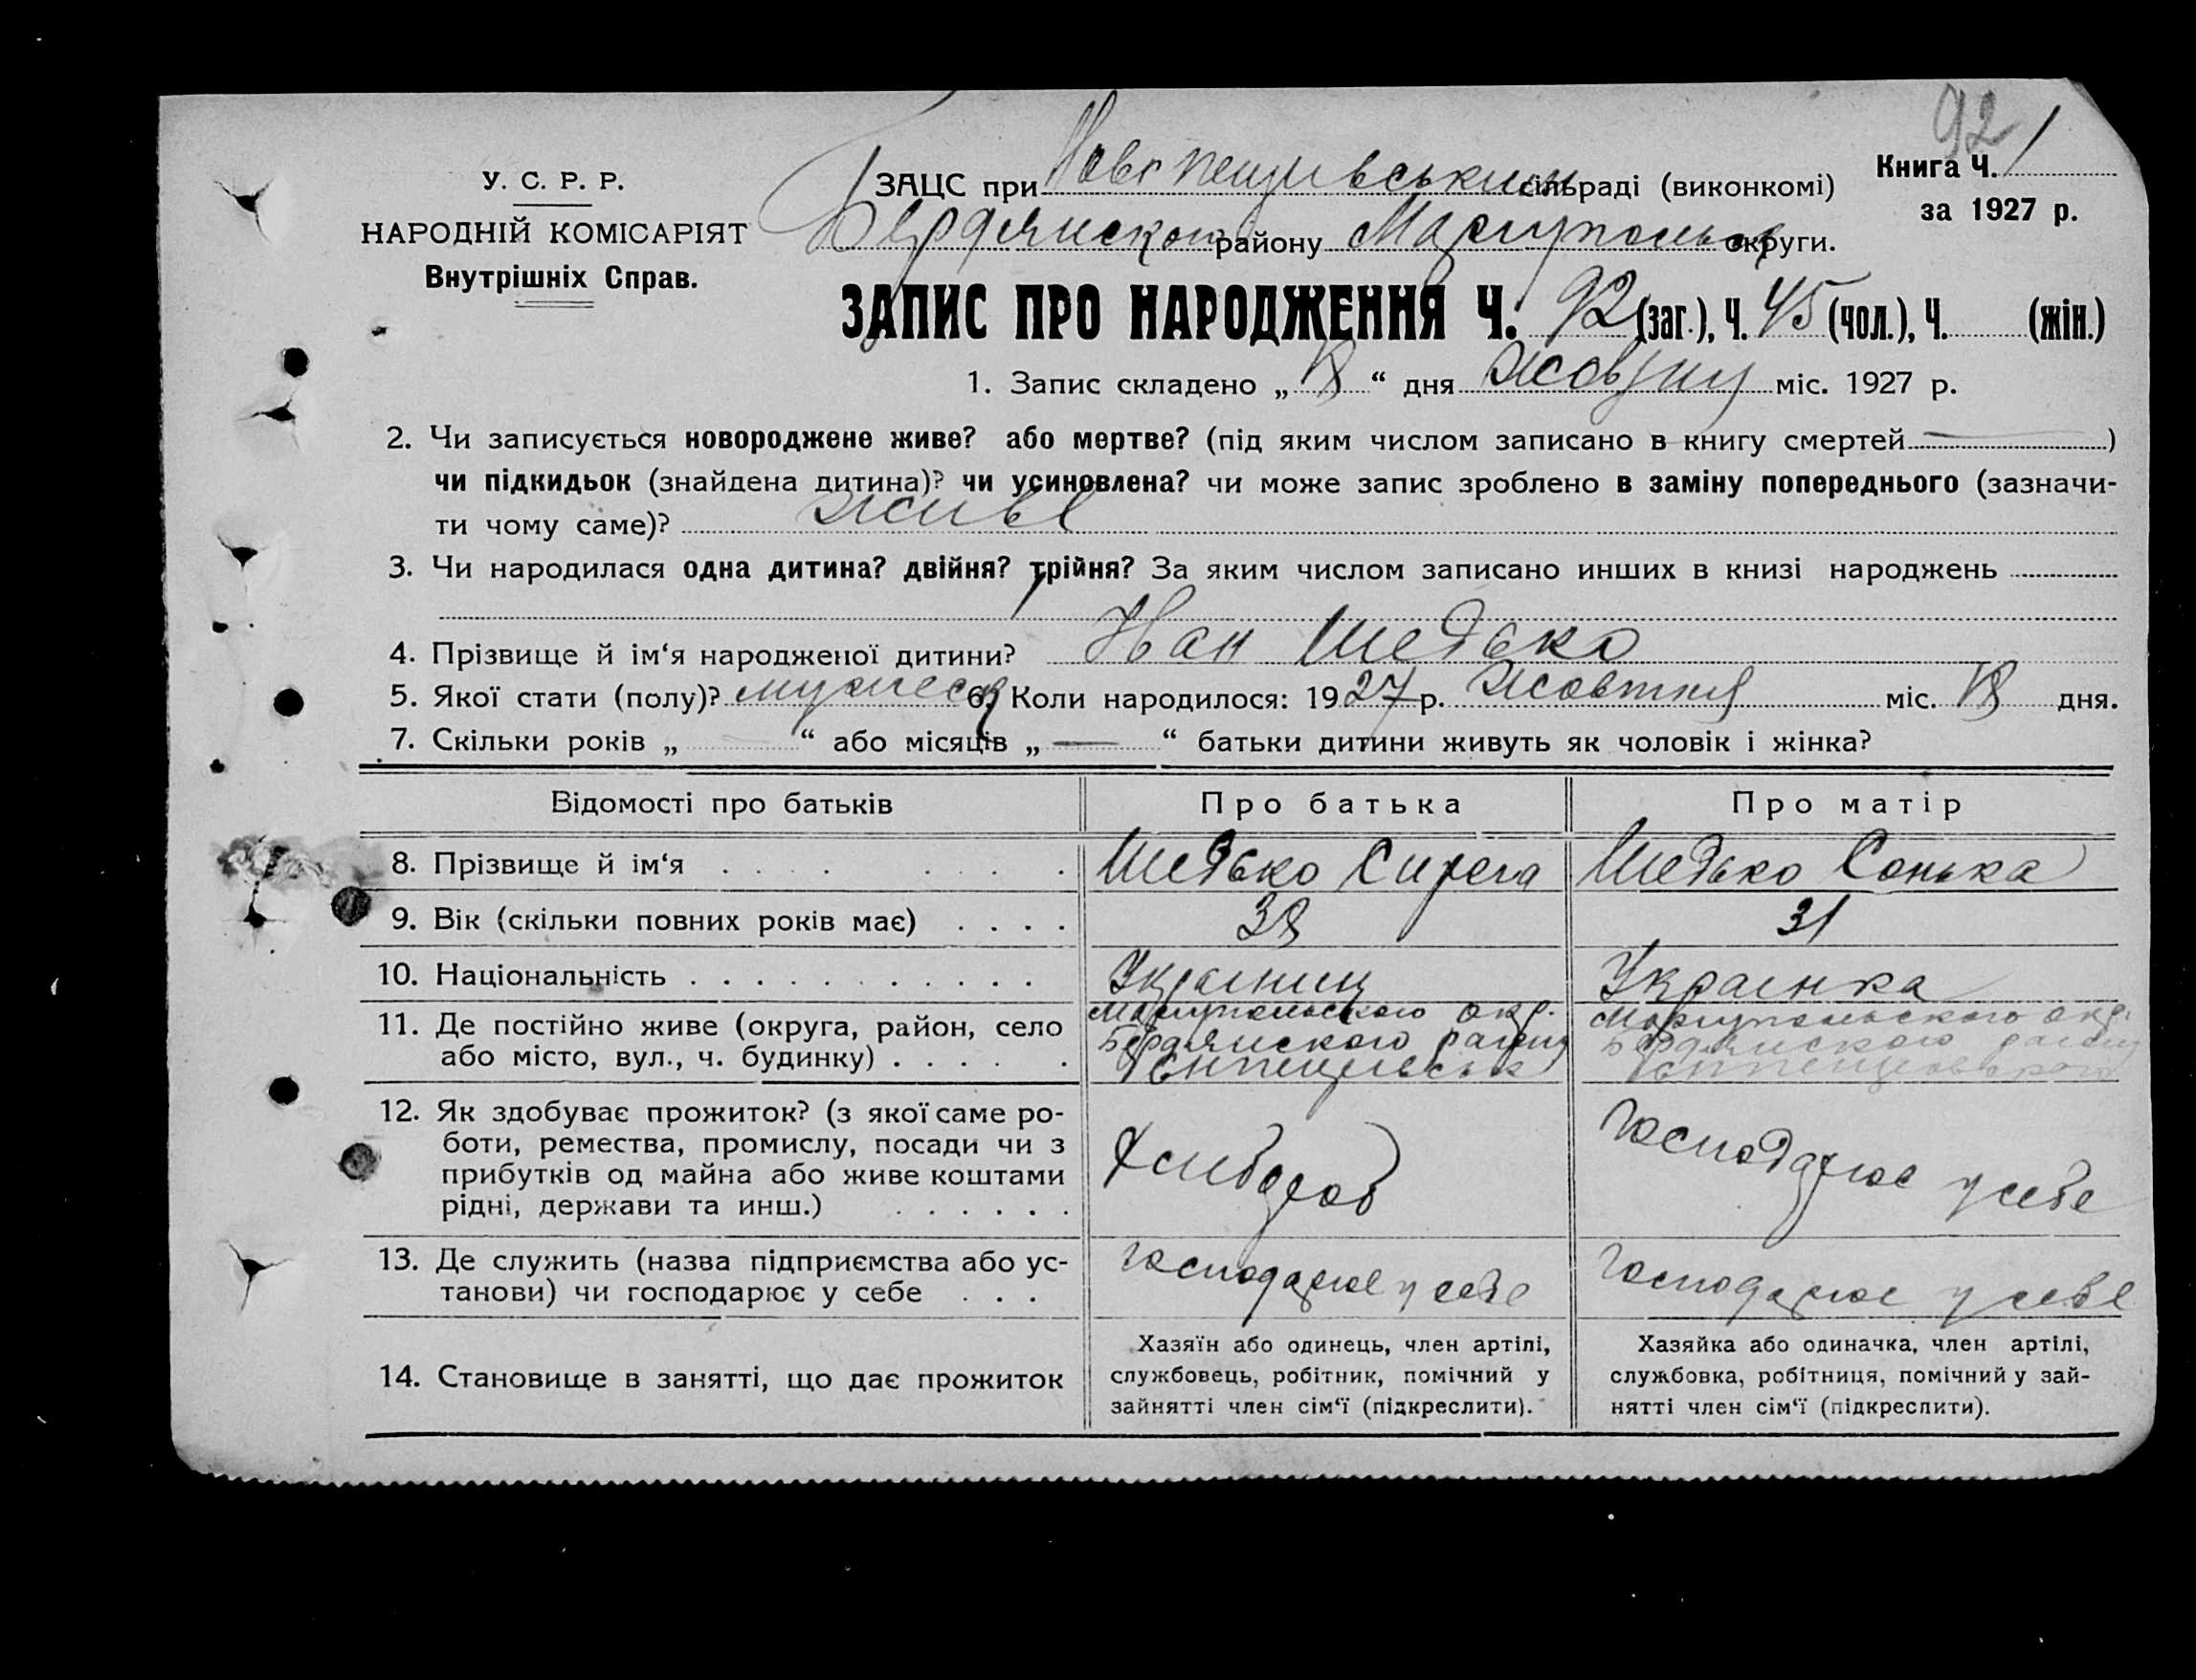 92
У. С. Р. Р.
НАРОДНІЙ КОМІСАРІЯТ
Внутрішніх Справ.
ЗАЦС при сільраді (виконкомі)
Бердянского району Маріупольськ округи.
Книга Ч. 1
за 1927 р.
ЗАПИС ПРО НАРОДЖЕННЯ Ч. 92 (заг.), Ч. 45 (чол.), Ч. (жін.)
1. Запис складено „ “ дня міс. 1927 р.
2. Чи записується новороджене живе? або мертве? (під яким числом записано в книгу смертей )
чи підкидьок (знайдена дитина)? чи усиновлена? чи може запис зроблено в заміну попереднього (зазначи-
ти чому саме)? живе
3. Чи народилася одна дитина? двійня? трійня? За яким числом записано инших в книзі народжень
1
4. Прізвище й ім‘я народженої дитини? Иван Шедько
5. Якої стати (полу)? мужеск 6. Коли народилося: 1927 р. Жовтня міс. дня.
7. Скільки років „ — “ або місяців „ — “ батьки дитини живуть як чоловік і жінка?
Відомості про батьків Про батька Про матір
8. Прізвище й ім‘я Шедько Шедько Сонька
9. Вік (скільки повних років має) 38 31
10. Національність Украинец Украинка
11. Де постійно живе (округа, район, село
або місто, вул., ч. будинку)
Мариупольского окр.
Бердянского району
Мариупольского окр.
Бердянского району
12. Як здобуває прожиток? (з якої саме ро-
боти, ремества, промислу, посади чи з
прибутків од майна або живе коштами
рідні, держави та инш.)
Хлибороб
Господарює у себе
13. Де служить (назва підприємства або ус-
танови) чи господарює у себе
Господарює у себе
Господарює у себе
14. Становище в занятті, що дає прожиток
Хазяїн або одинець, член артілі,
службовець, робітник, помічний у
зайнятті член сім‘ї (підкреслити).
Хазяйка або одиначка, член артілі,
службовка, робітниця, помічний у зай-
нятті член сім‘ї (підкреслити).